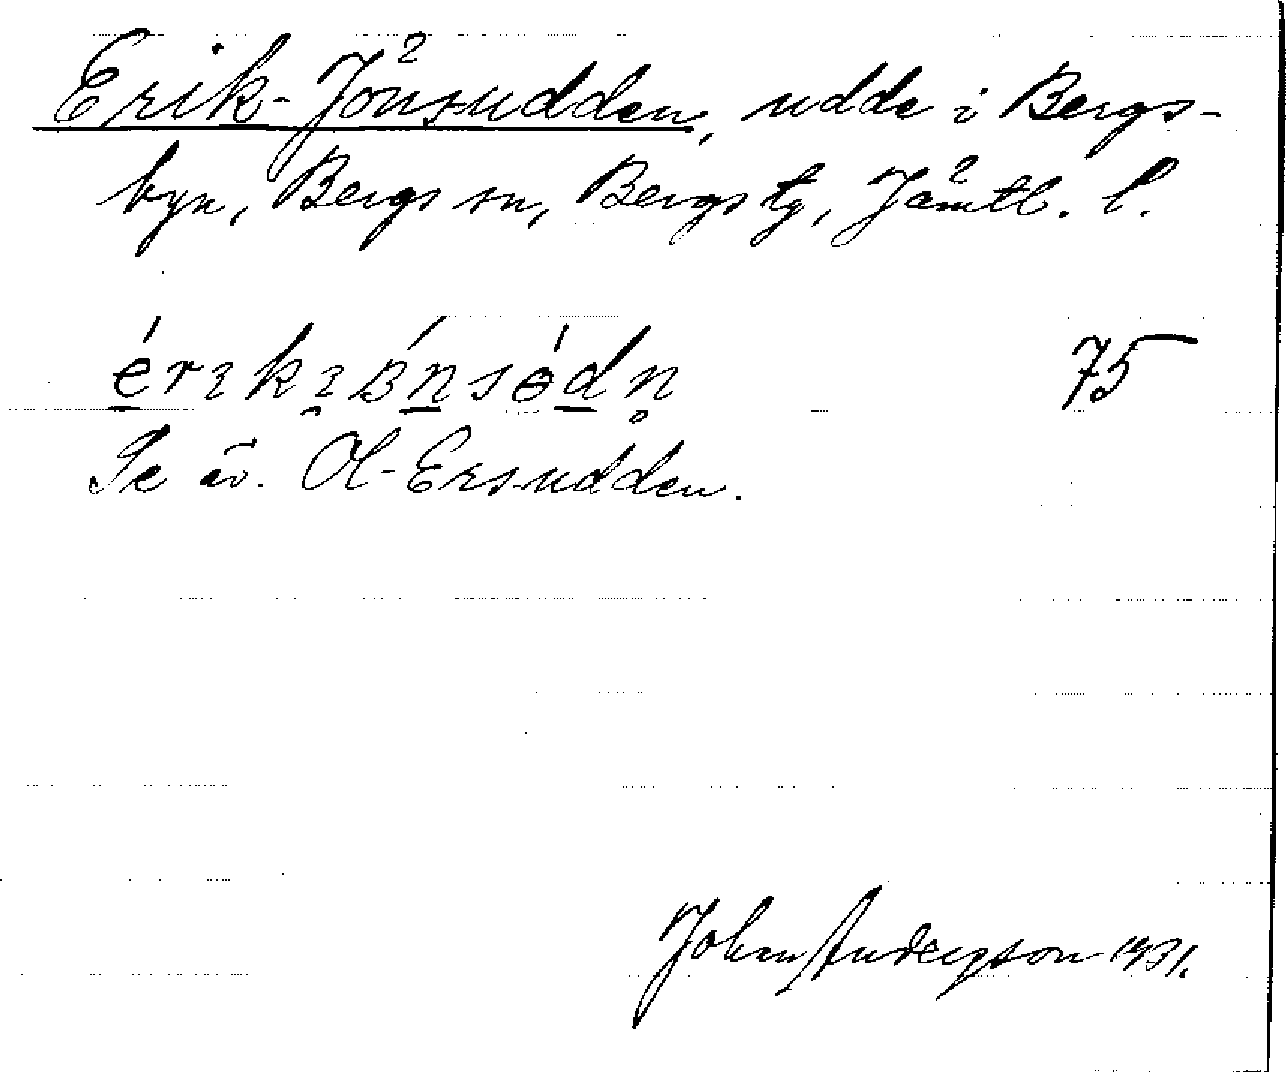 Erik-Jönsudden, udde i Bergs-
byn, Bergs sn, Bergs tg, Jämtl. l.
75
Se äv. Ol-Ersudden.
John Andersson 1931.